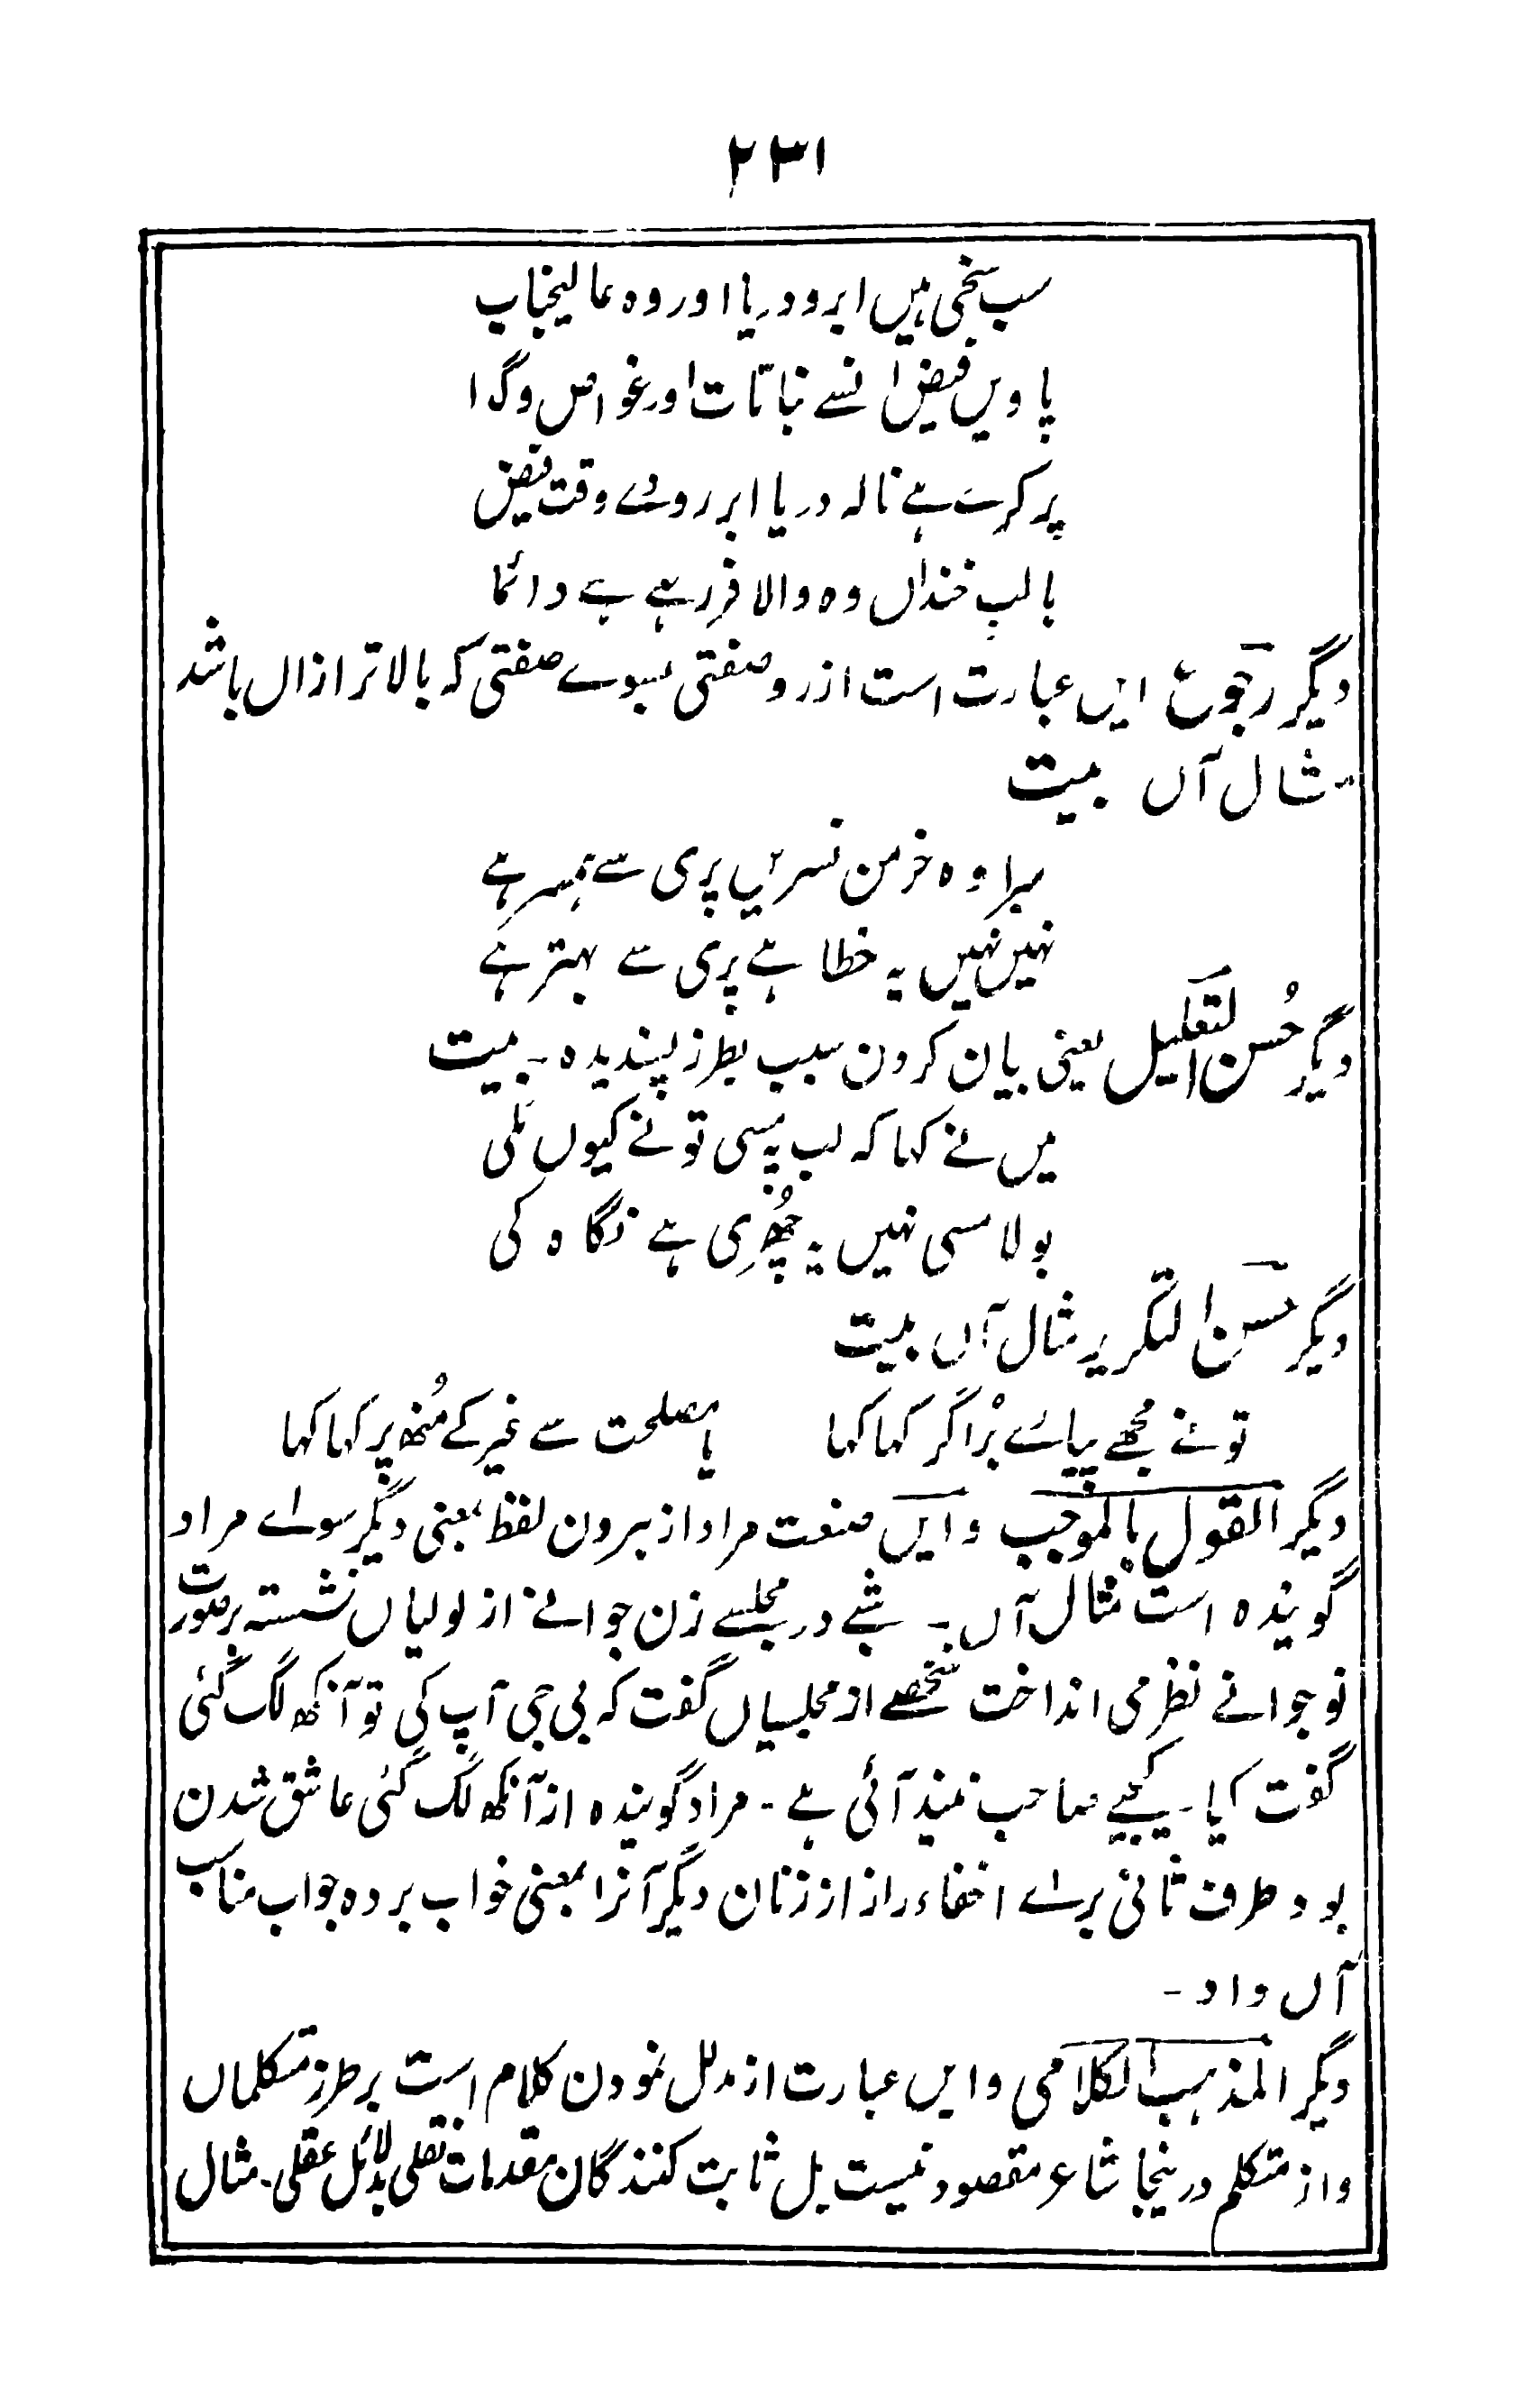 ۲۳۱
سب سخی ہیں ابر و دریا اور وہ عالیجناب
پاویں فیض انسے نباتات اور غواص و گدا
پر کرے ہے نالہ دریا ابر روئے وقت فیض
با لب خنداں وہ والا فر رہے ہے دائما
دیگر رجوع ایں عبارت است از رو صفتی بسوے صفتی کہ بالاتر ازاں باشد
مثال آں بیت
مرا وہ خرمن نسریں پری سے ہمسر ہے
نہیں نہیں یہ خطا ہے پری سے بہتر ہے
دیگر حُسن التعلیل یعنی بیان کردن سبب بطرز پسندیدہ۔ بیت
میں نے کہا کہ لب پہ مسی تو نے کیوں مَلی
بولا مسی نہیں یہ چُھرِی ہے نگاہ کی
دیگر حسن التکریر مثال آں بیت
تونے مجھے پیارے بُرا گر کہا کہا یا مصلحت سے غیر کے مُنھ پر کہا کہا
دیگر القول بالموجب و ایں صنعت مراد از بردن لفظ بمعنی دیگر سواے مراد
گویندہ است مثال آں۔ شبے در مجلسے زن جوانے از لولیاں نشستہ بر صورت
نوجوانے نظر می انداخت شخصے از مجلسیاں گفت کہ بی جی آپ کی تو آنکھ لگ گئی
گفت کیا کیجیے صاحب نیند آئی ہے۔ مراد گویندہ از آنکھ لگ گئی عاشق شدن
بود طرف ثانی براے اخفاء راز از زنان دیگر آنرا بمعنی خواب بردہ جواب مناسب
آں داد۔
دیگر المذہب الکلامی و ایں عبارت از مدلل نمودن کلام است بر طرز متکلماں
و از متکلم درینجا شاعر مقصود نیست بل ثابت کنندگان مقدمات نقلی بدلائل عقلی۔ مثال